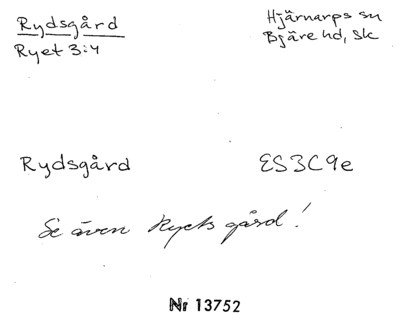 Rydsgård
Ryet 3:4
Hjärnarps sn
Bjäre hd, Sk
Rydsgård
ES3C9e
Se även Rycksgård!
Nr 13752